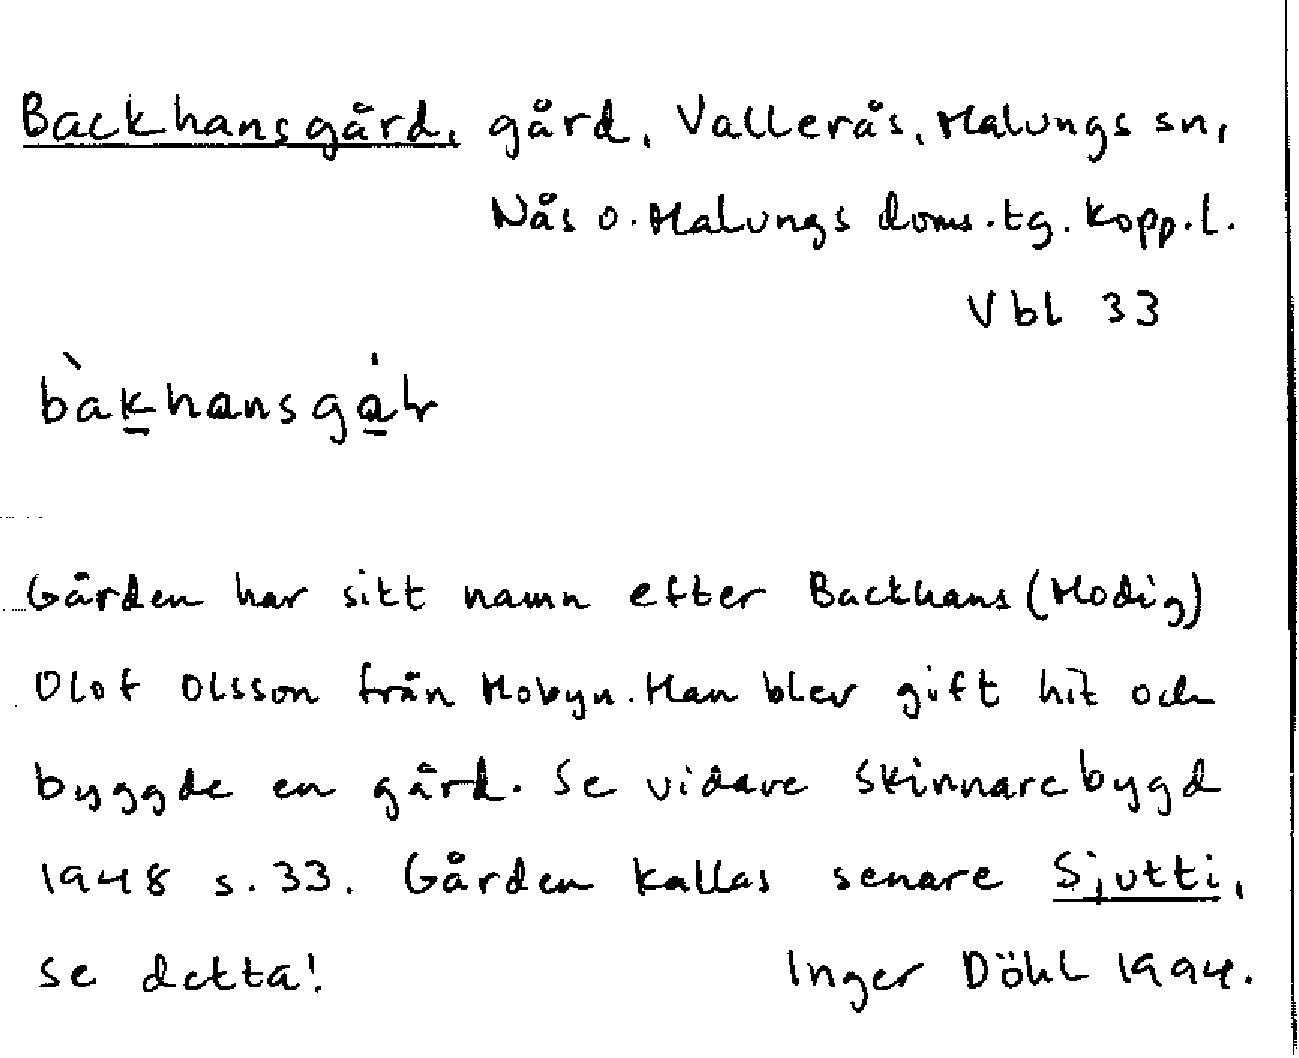 Backhansgård, gård, Vallerås, Malungs sn,
Nås o. Malungs doms.tg. Kopp.l.
Vbl 33
Gården har sitt namn efter Backhans (Modig)
Olof Olsson från Mobyn. Han blev gift hit och
byggde en gård. Se vidare Skinnarebygd
1948 s. 33. Gården kallas senare Sjutti,
se detta! Inger Döhl 1994.